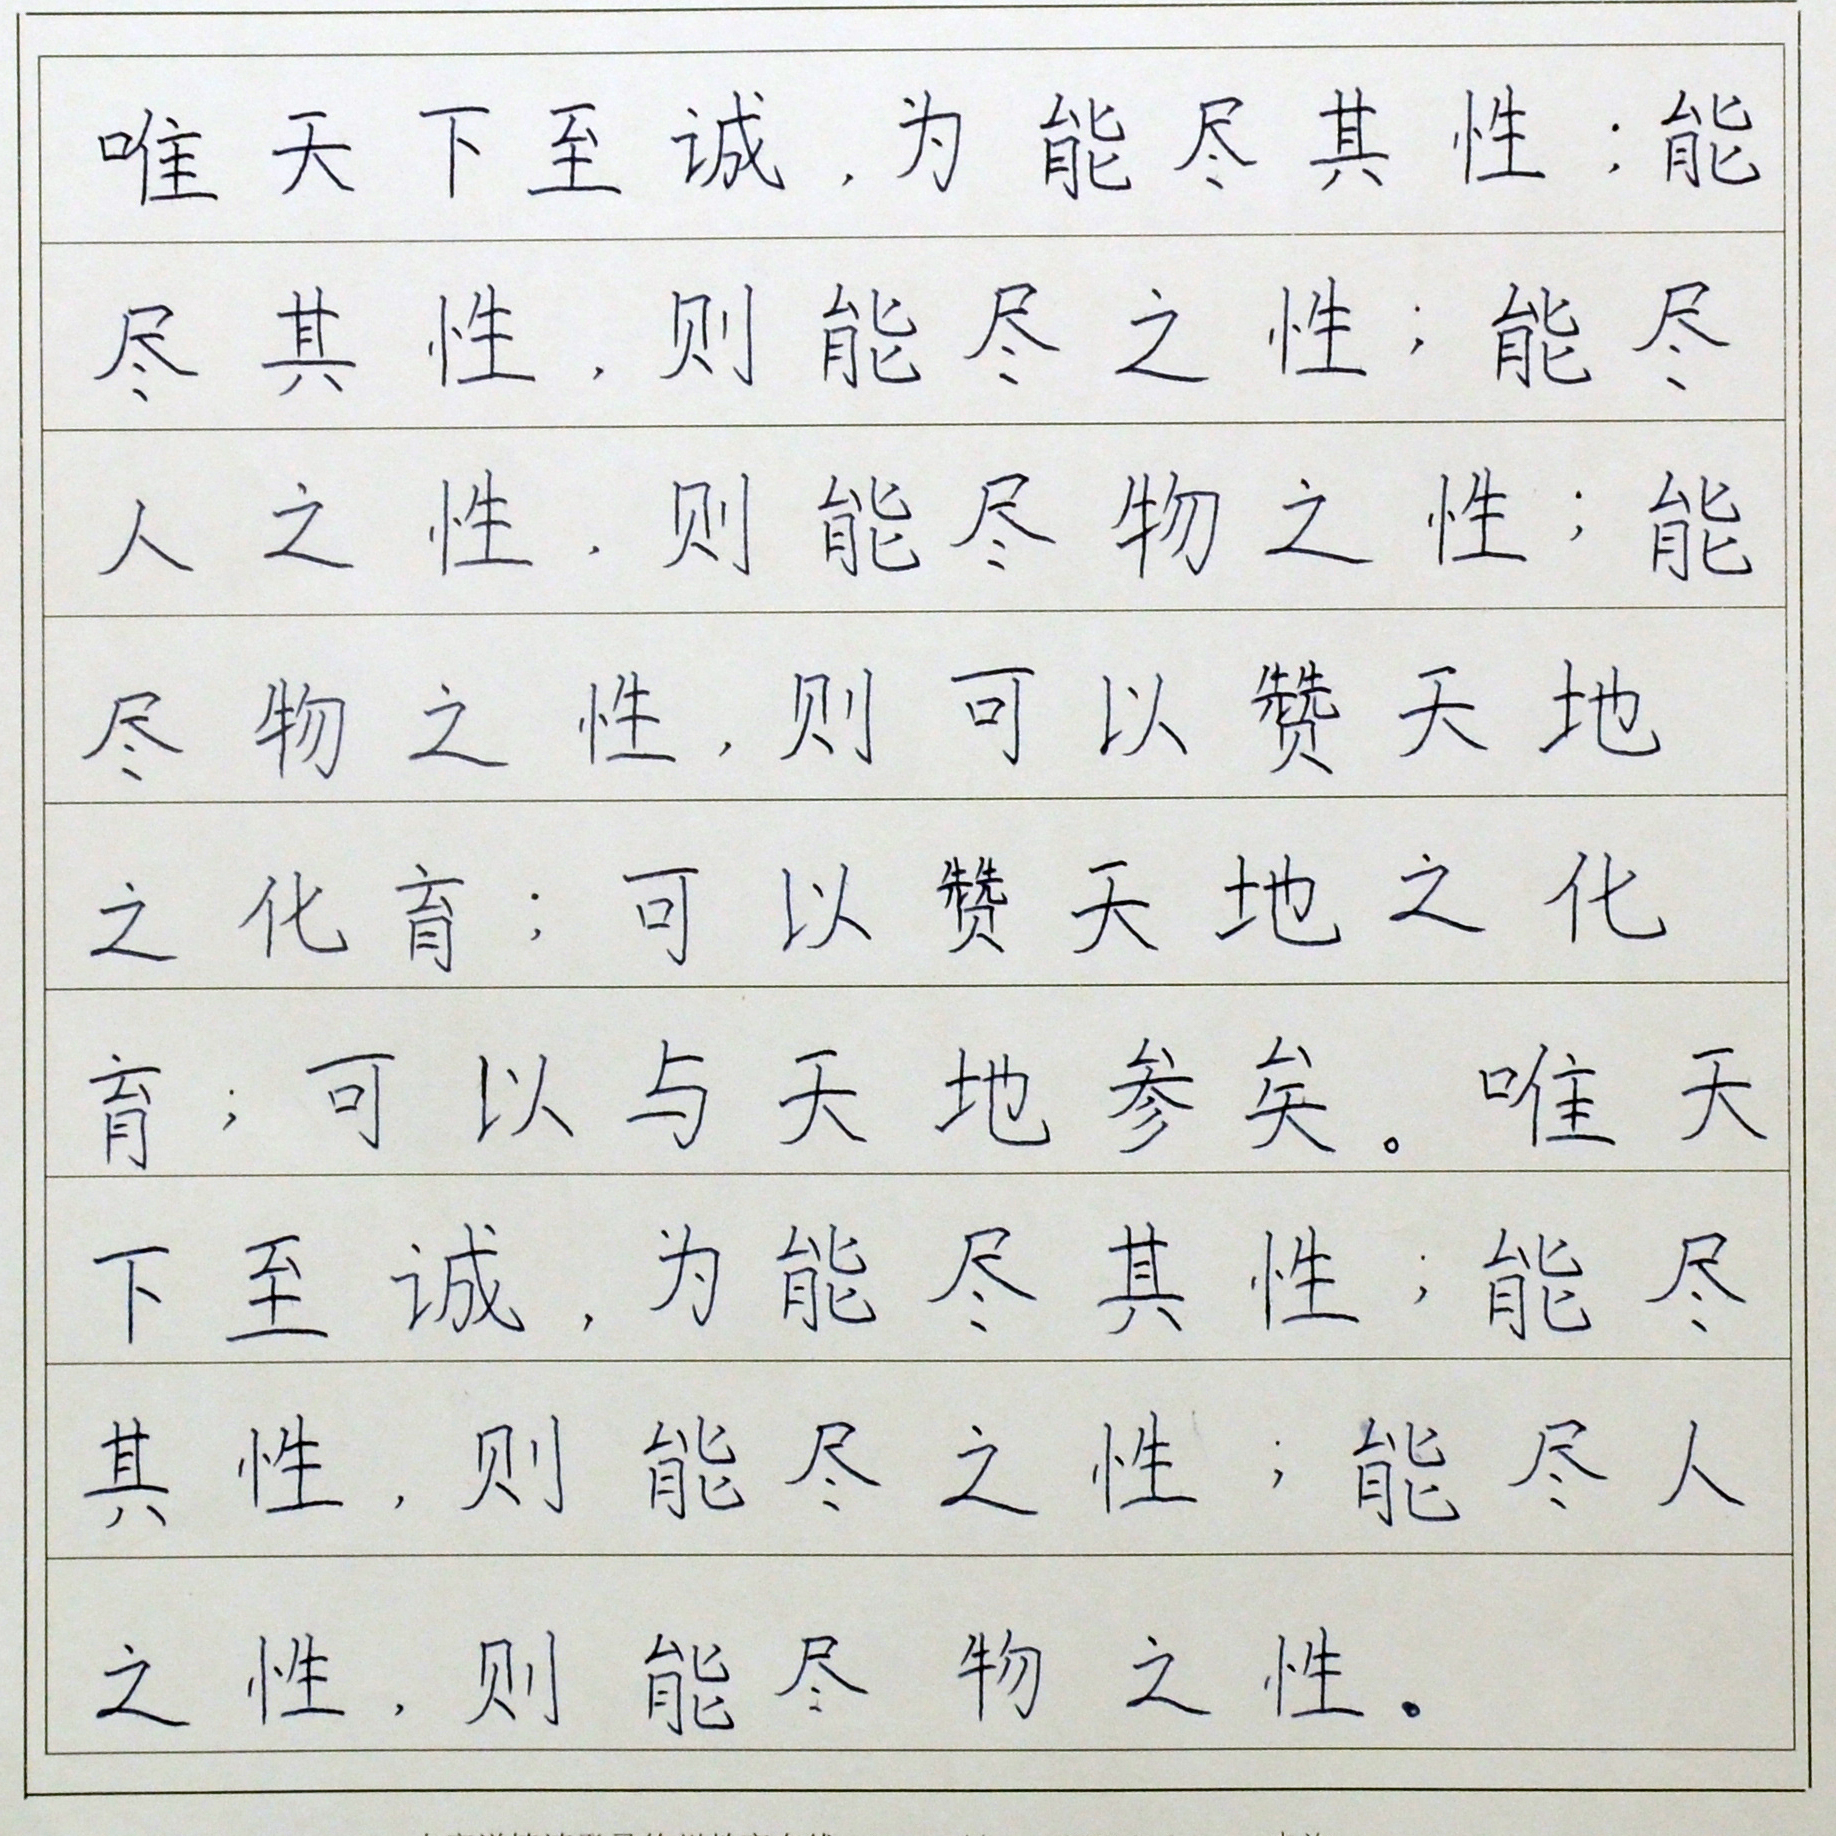 唯天下至诚，为能尽其性；能
尽其性，则能尽之性；能尽
人之性，则能尽物之性；能
尽物之性，则可以赞天地
之化育；可以赞天地之化
育；可以与天地参矣。唯天
下至诚，为能尽其性；能尽
其性，则能尽之性；能尽人
之性，则能尽物之性。